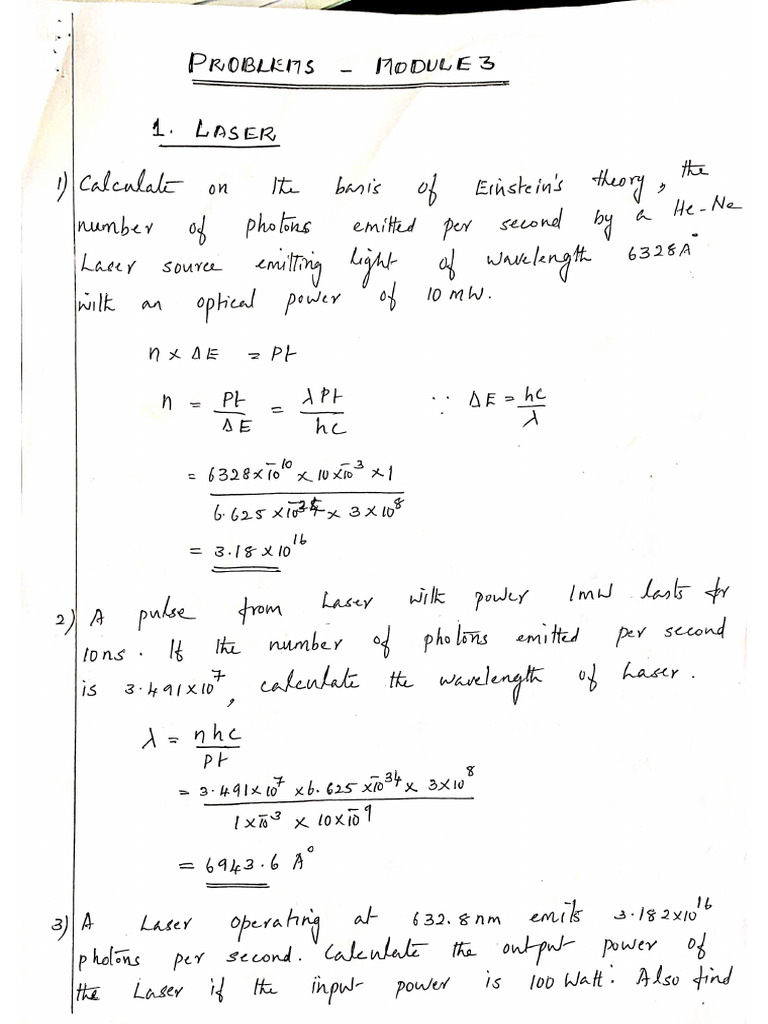 PROBLEMS - MODULE 3
1. LASER
1) Calculate on the basis of Einstein's theory, the
number of photons emitted per second by a He-Ne
Laser source emitting light of wavelength 6328A°
with an optical power of 10 mW.
n × ΔE = Pt
n = Pt/ΔE = λPt/hc ∵ ΔE = hc/λ
= 6328×10⁻¹⁰ × 10×10⁻³ × 1
6.625 ×10⁻³⁴ × 3×10⁸
= 3.18 ×10¹⁶
2) A pulse from Laser with power 1mW lasts for
10ns. If the number of photons emitted per second
is 3.491×10⁷, calculate the wavelength of Laser.
λ = nhc/Pt
= 3.491×10⁷ ×6.625 ×10⁻³⁴ × 3×10⁸
1×10⁻³ × 10×10⁻⁹
= 6943.6 A°
3) A Laser operating at 632.8nm emits 3.182×10¹⁶
photons per second. Calculate the output power of
the Laser if the input power is 100 Watt. Also find